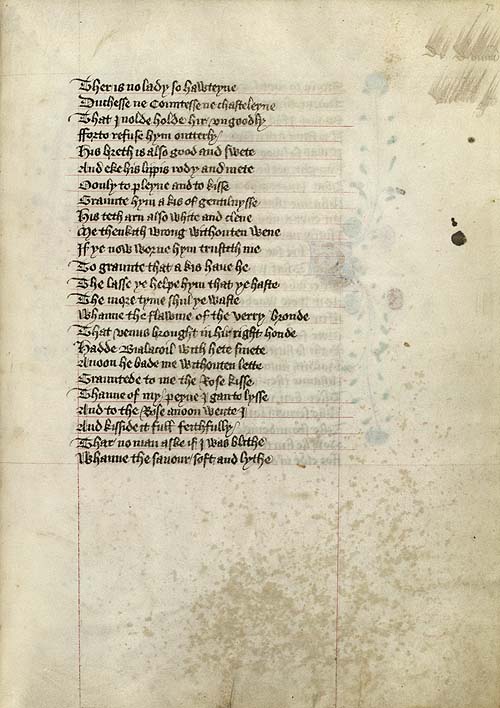 Ther is no lady so hawteyne
Duchesse ne Countesse ne chasteleyne
That I nolde holde hir vngoodly
fforto refuse hym outterly
His breth is also good and swete
And eke his lippis rody and mete
Oonly to pleyne and to kisse
Graunte hym a kis of gentilnysse
His teth arn also white and clene
Me thenkith wrong withouten wene
If ye now worne hym trustith me
To graunte that a kis haue he
The lasse ye helpe hym that ye haste
The more tyme shul ye waste
Whanne the flawme of the verry bronde
That venus brought in hir right honde
Hadde Bialacoil with hete smete
Anoon he bade me withouten lette
Grauntede to me the Rose kisse
Thanne of my peyne I gan to lysse
And to the Rose anoon wente I
And kisside it full feithfully
That no man aske if I was blithe
Whanne the savour soft and lythe